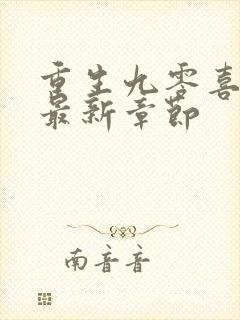 重生九零喜
最新章节
南音音